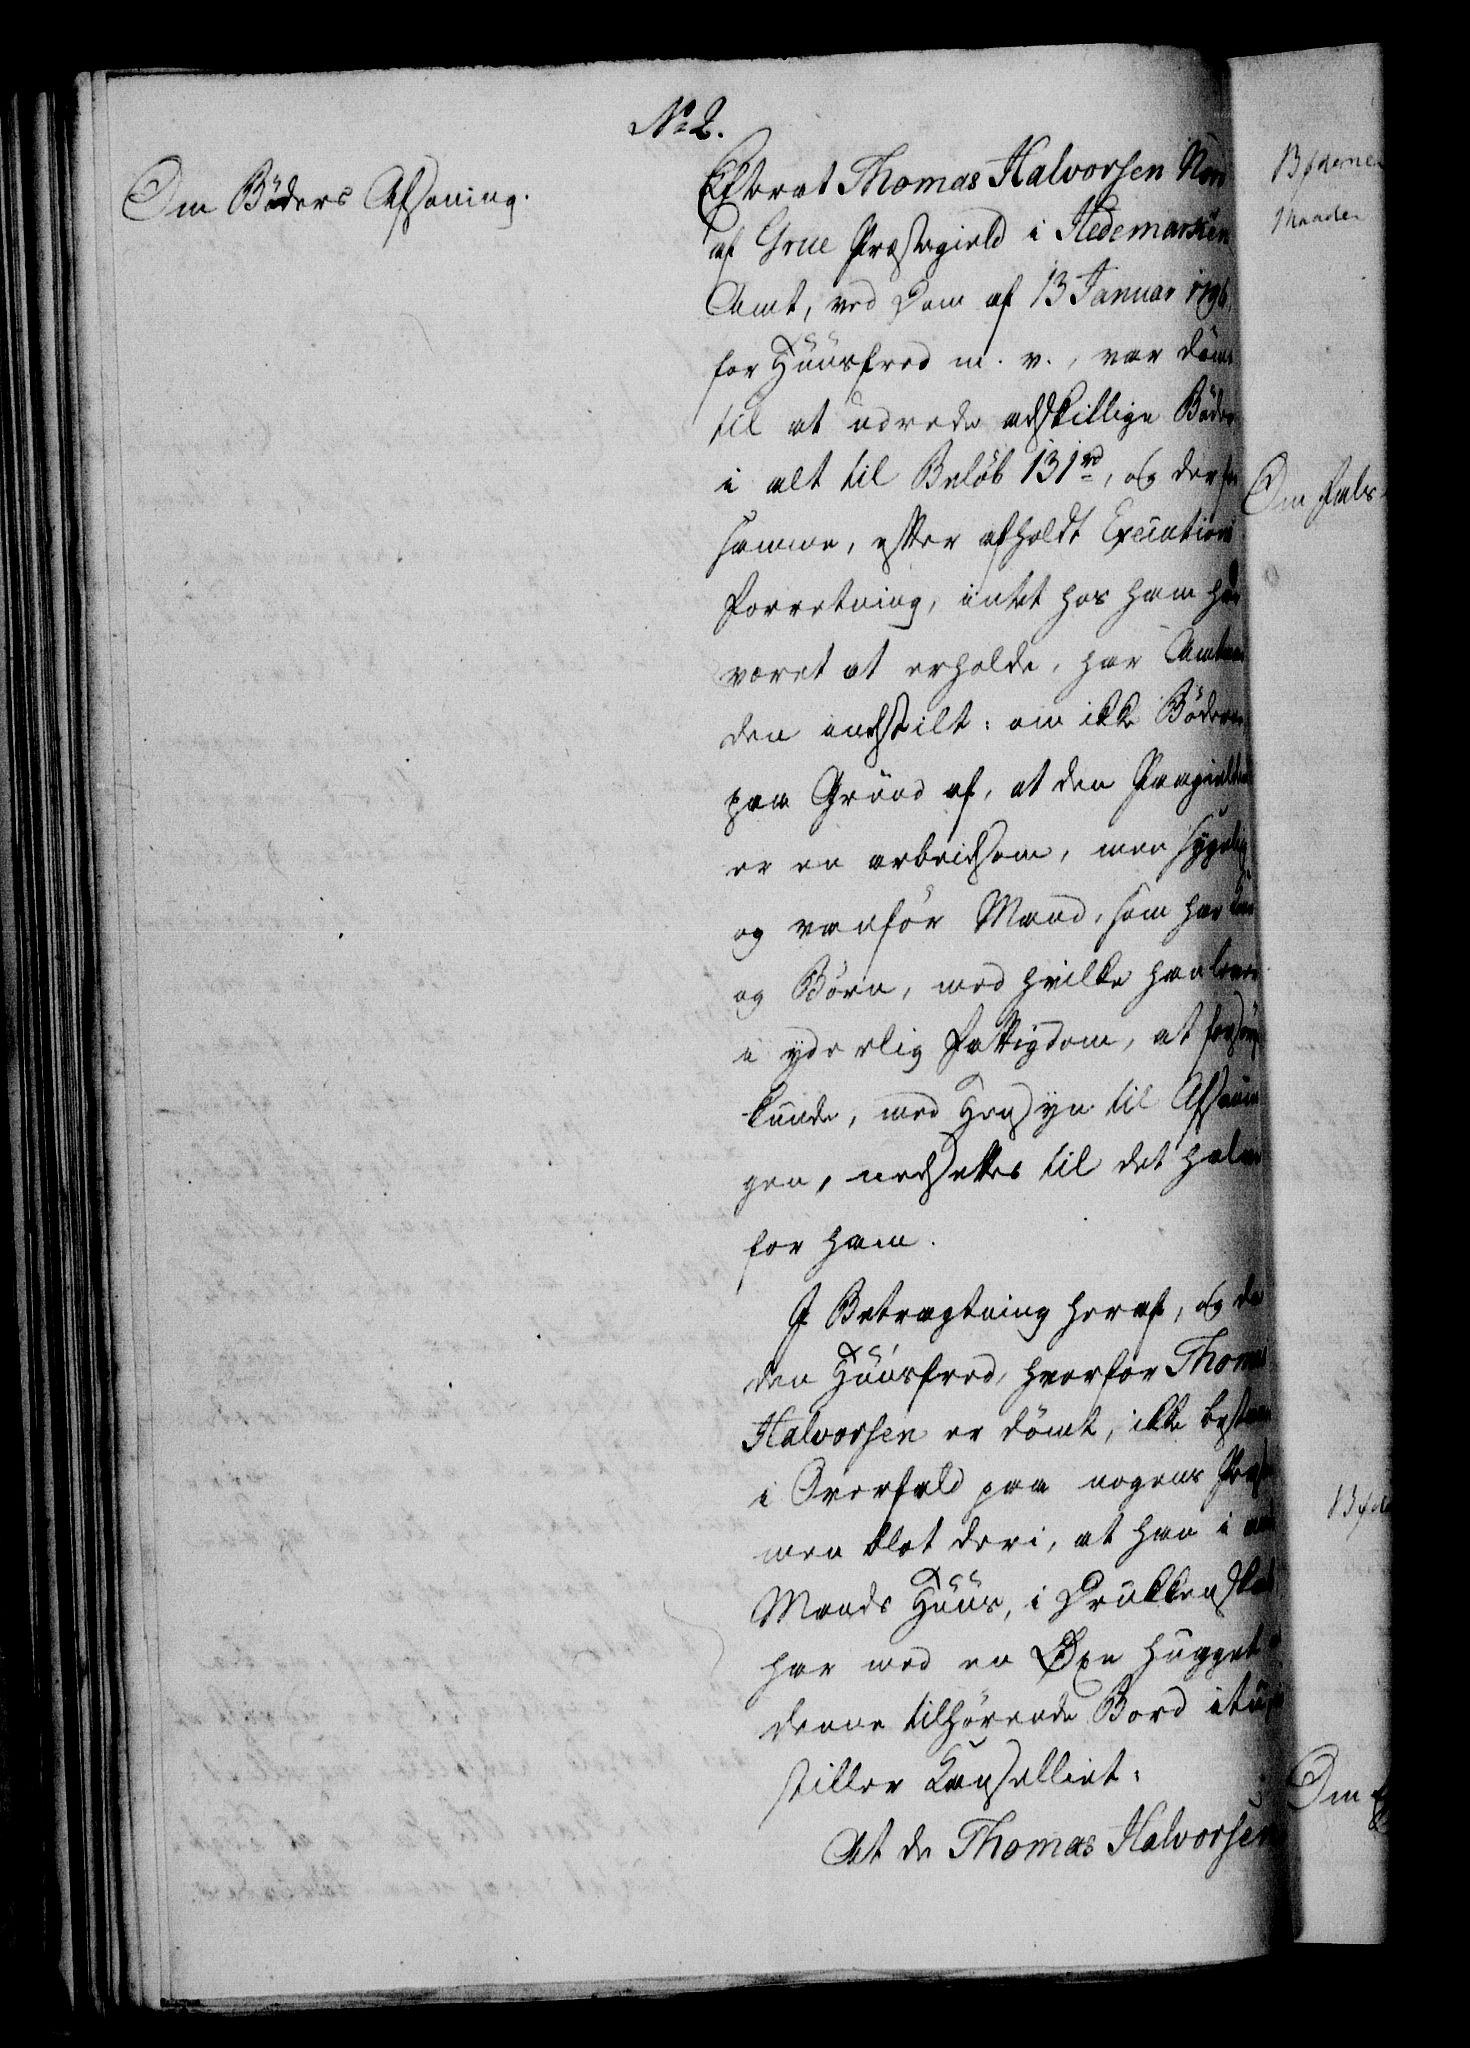 No 2.
Om Böders Afsoning.
Efterat Thomas Halvorsen
af Grue Præstegield i Hedemarken
Amt, ved Dom af 13 Januar 1796,
for Huusfred m. v., var döm
til at udrede adskillige Böder
i alt til Beløb 131 rd, og derfor
samme, efter afholdt Execution
Forretning, intet hos ham har
været at erholde, har Amtman
den indstilt: om ikke Böderne
paa Grund af, at den Paagieldende
er en arbeidsom, men sygelig
og vanför Mand, som har
og Börn, med hvilke han lever
i yderlig Fattigdom, at forsörge
kunde, med Hensyn til Afsonin
gen, nedsættes til det halve
for ham.
I Betragtning heraf, og da
den Huusfred, hvorfor Thomas
Halvorsen er dömt, ikke bestaaer
i Overfald paa nogens Person
men blot deri, at han i
Mands Huus, i Drukkenskab
har med en Öxe hugget
denne tilhörende Bord itu,
stiller Cancelliet:
At de Thomas Halvorsen
Böderne
Maade
Om Fals
Om